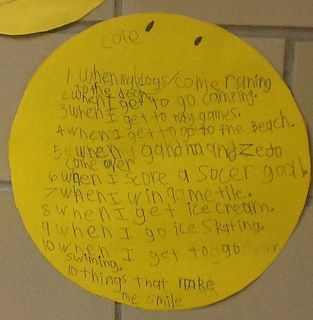 cole
1 when my dogs come runing
to the door
2 when I get to go camping.
3 when I get to play games.
4 when I get to go to the Beach.
5 when gandma and Zedo
come over
6 when I score a soccer goal
7 when I win gometile.
8 when I get ice cream.
9 when I go ice skating.
10 when I get to go
swiming.
10 things that make
me smile